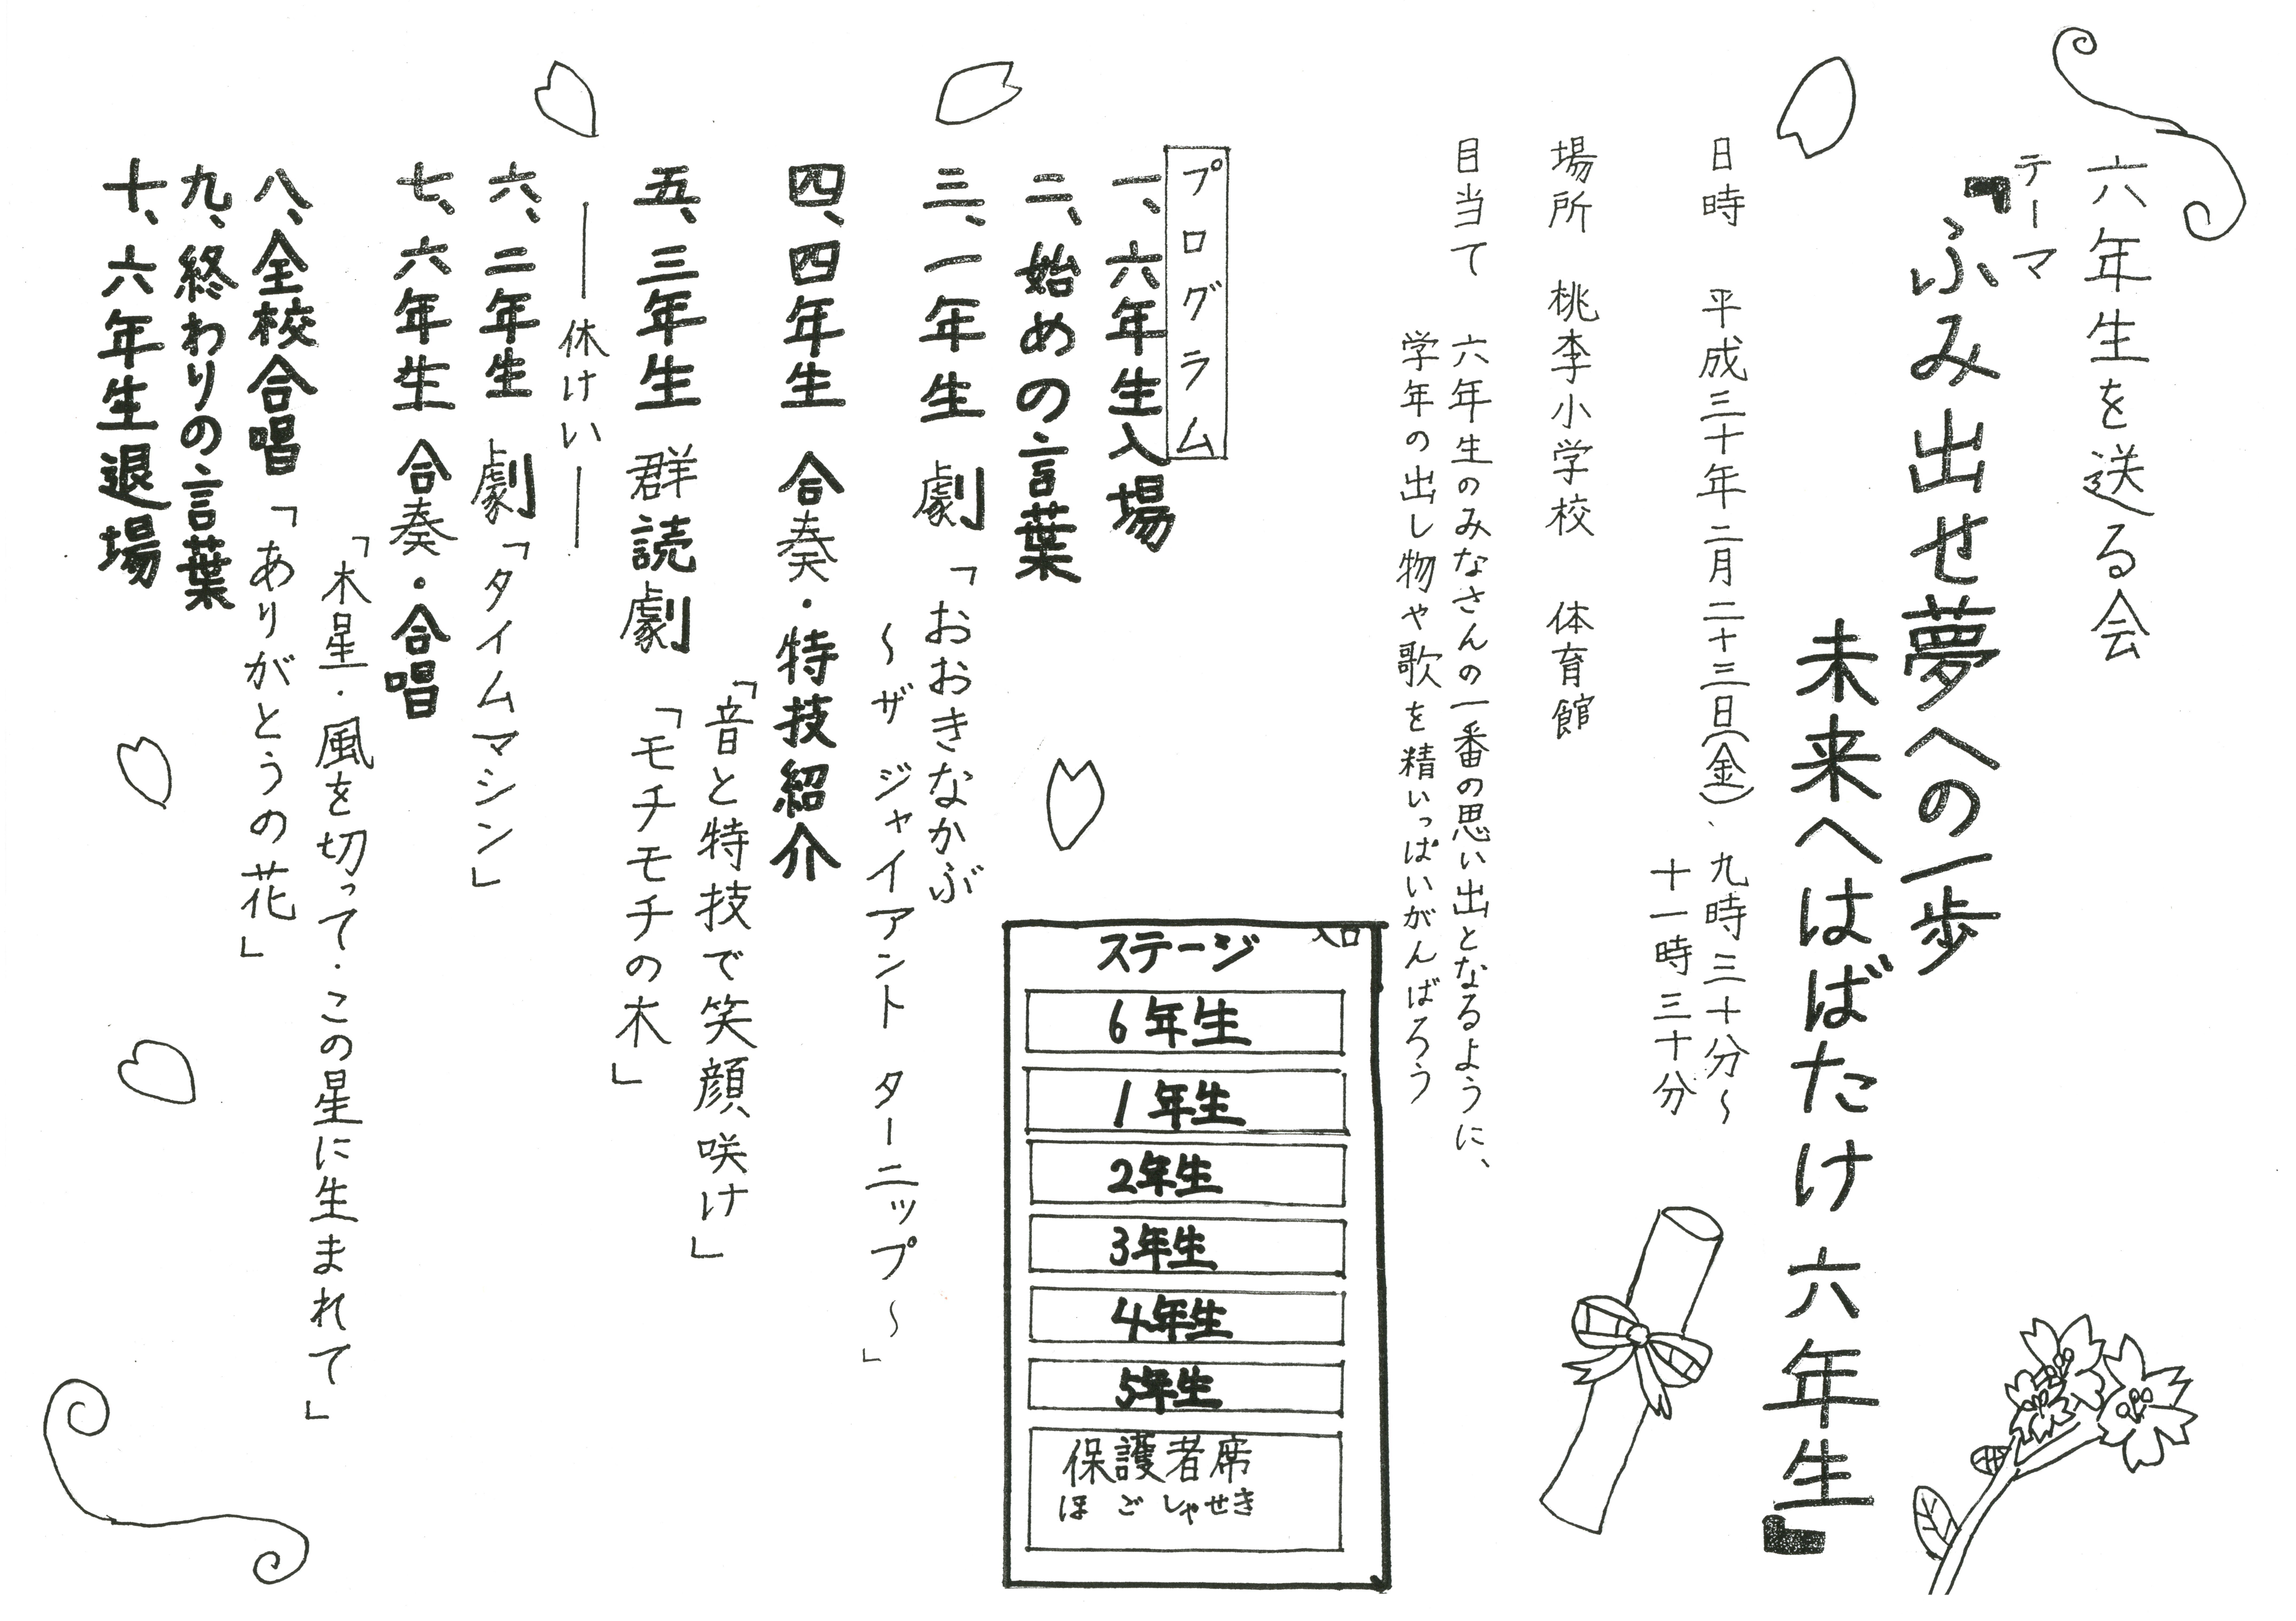 六年生を送る会
テーマ
『ふみ出せ夢への一歩
未来へはばたけ 六年生』
日時 平成三十年二月二十三日(金)、九時三十分〜
十一時三十分
場所 桃李小学校 体育館
目当て 六年生のみなさんの一番の思い出となるように、
学年の出し物や歌を精いっぱいがんばろう
プログラム
一、六年生入場
二、始めの言葉
三、一年生 劇「おおきなかぶ
〜ザ ジャイアント ターニップ〜」
四、四年生 合奏・特技紹介
「音と特技で笑顔咲け」
五、三年生 群読劇「モチモチの木」
――休けい――
六、二年生 劇「タイムマシン」
七、六年生 合奏・合唱
「木星・風を切って・この星に生まれて」
八、全校合唱「ありがとうの花」
九、終わりの言葉
十、六年生退場
入口
ステージ
6年生
1年生
2年生
3年生
4年生
5年生
保護者席
ほごしゃせき